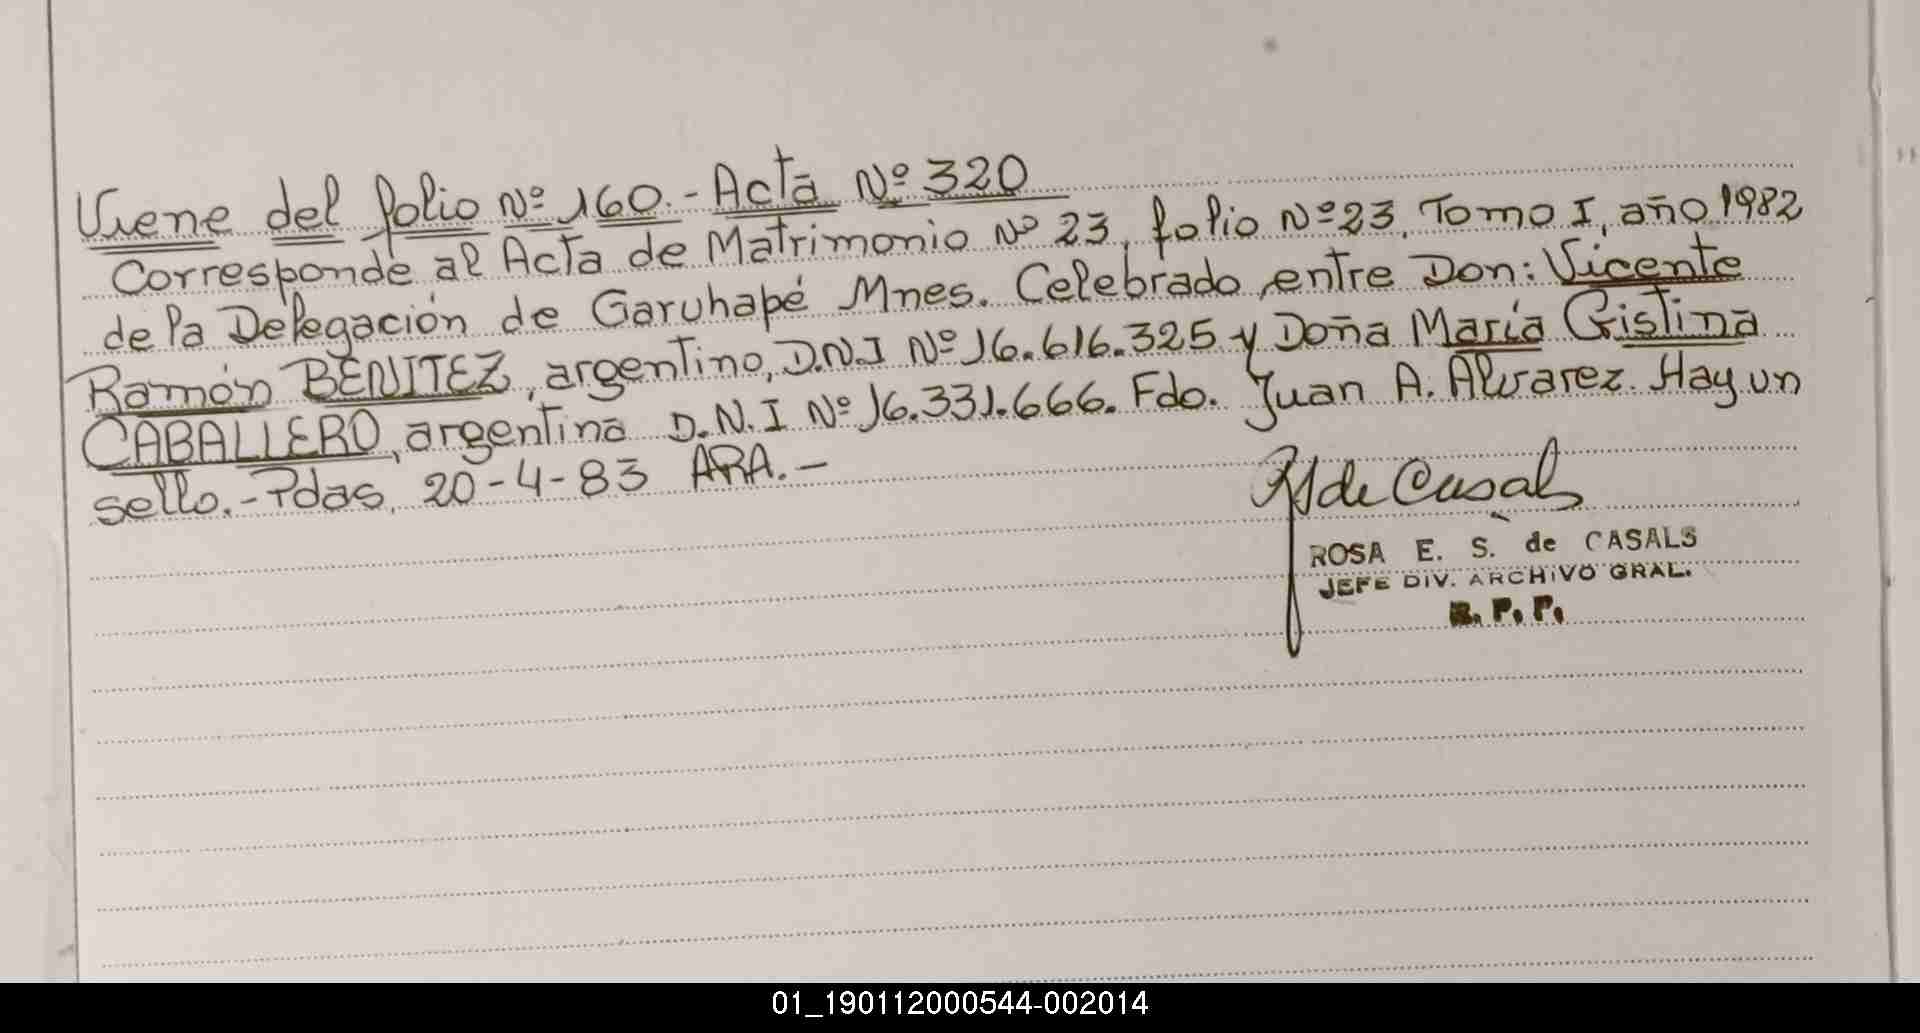 Viene del folio Nº 160.- Acta Nº 320
Corresponde al Acta de Matrimonio Nº 23, folio Nº 23, Tomo I, año 1982
de la Delegación de Garuhapé Mnes. Celebrado entre Don: Vicente
Ramón BENITEZ, argentino, D.N.I Nº 16.616.325 y Doña María Cristina
CABALLERO, argentina D.N.I Nº 16.331.666. Fdo. Juan A. Alvarez. Hay un
sello.- Pdas, 20-4-83 ARA.-
de Casals
ROSA E. S. de CASALS
JEFE DIV. ARCHIVO GRAL.
R. P. P.
01_190112000544-002014